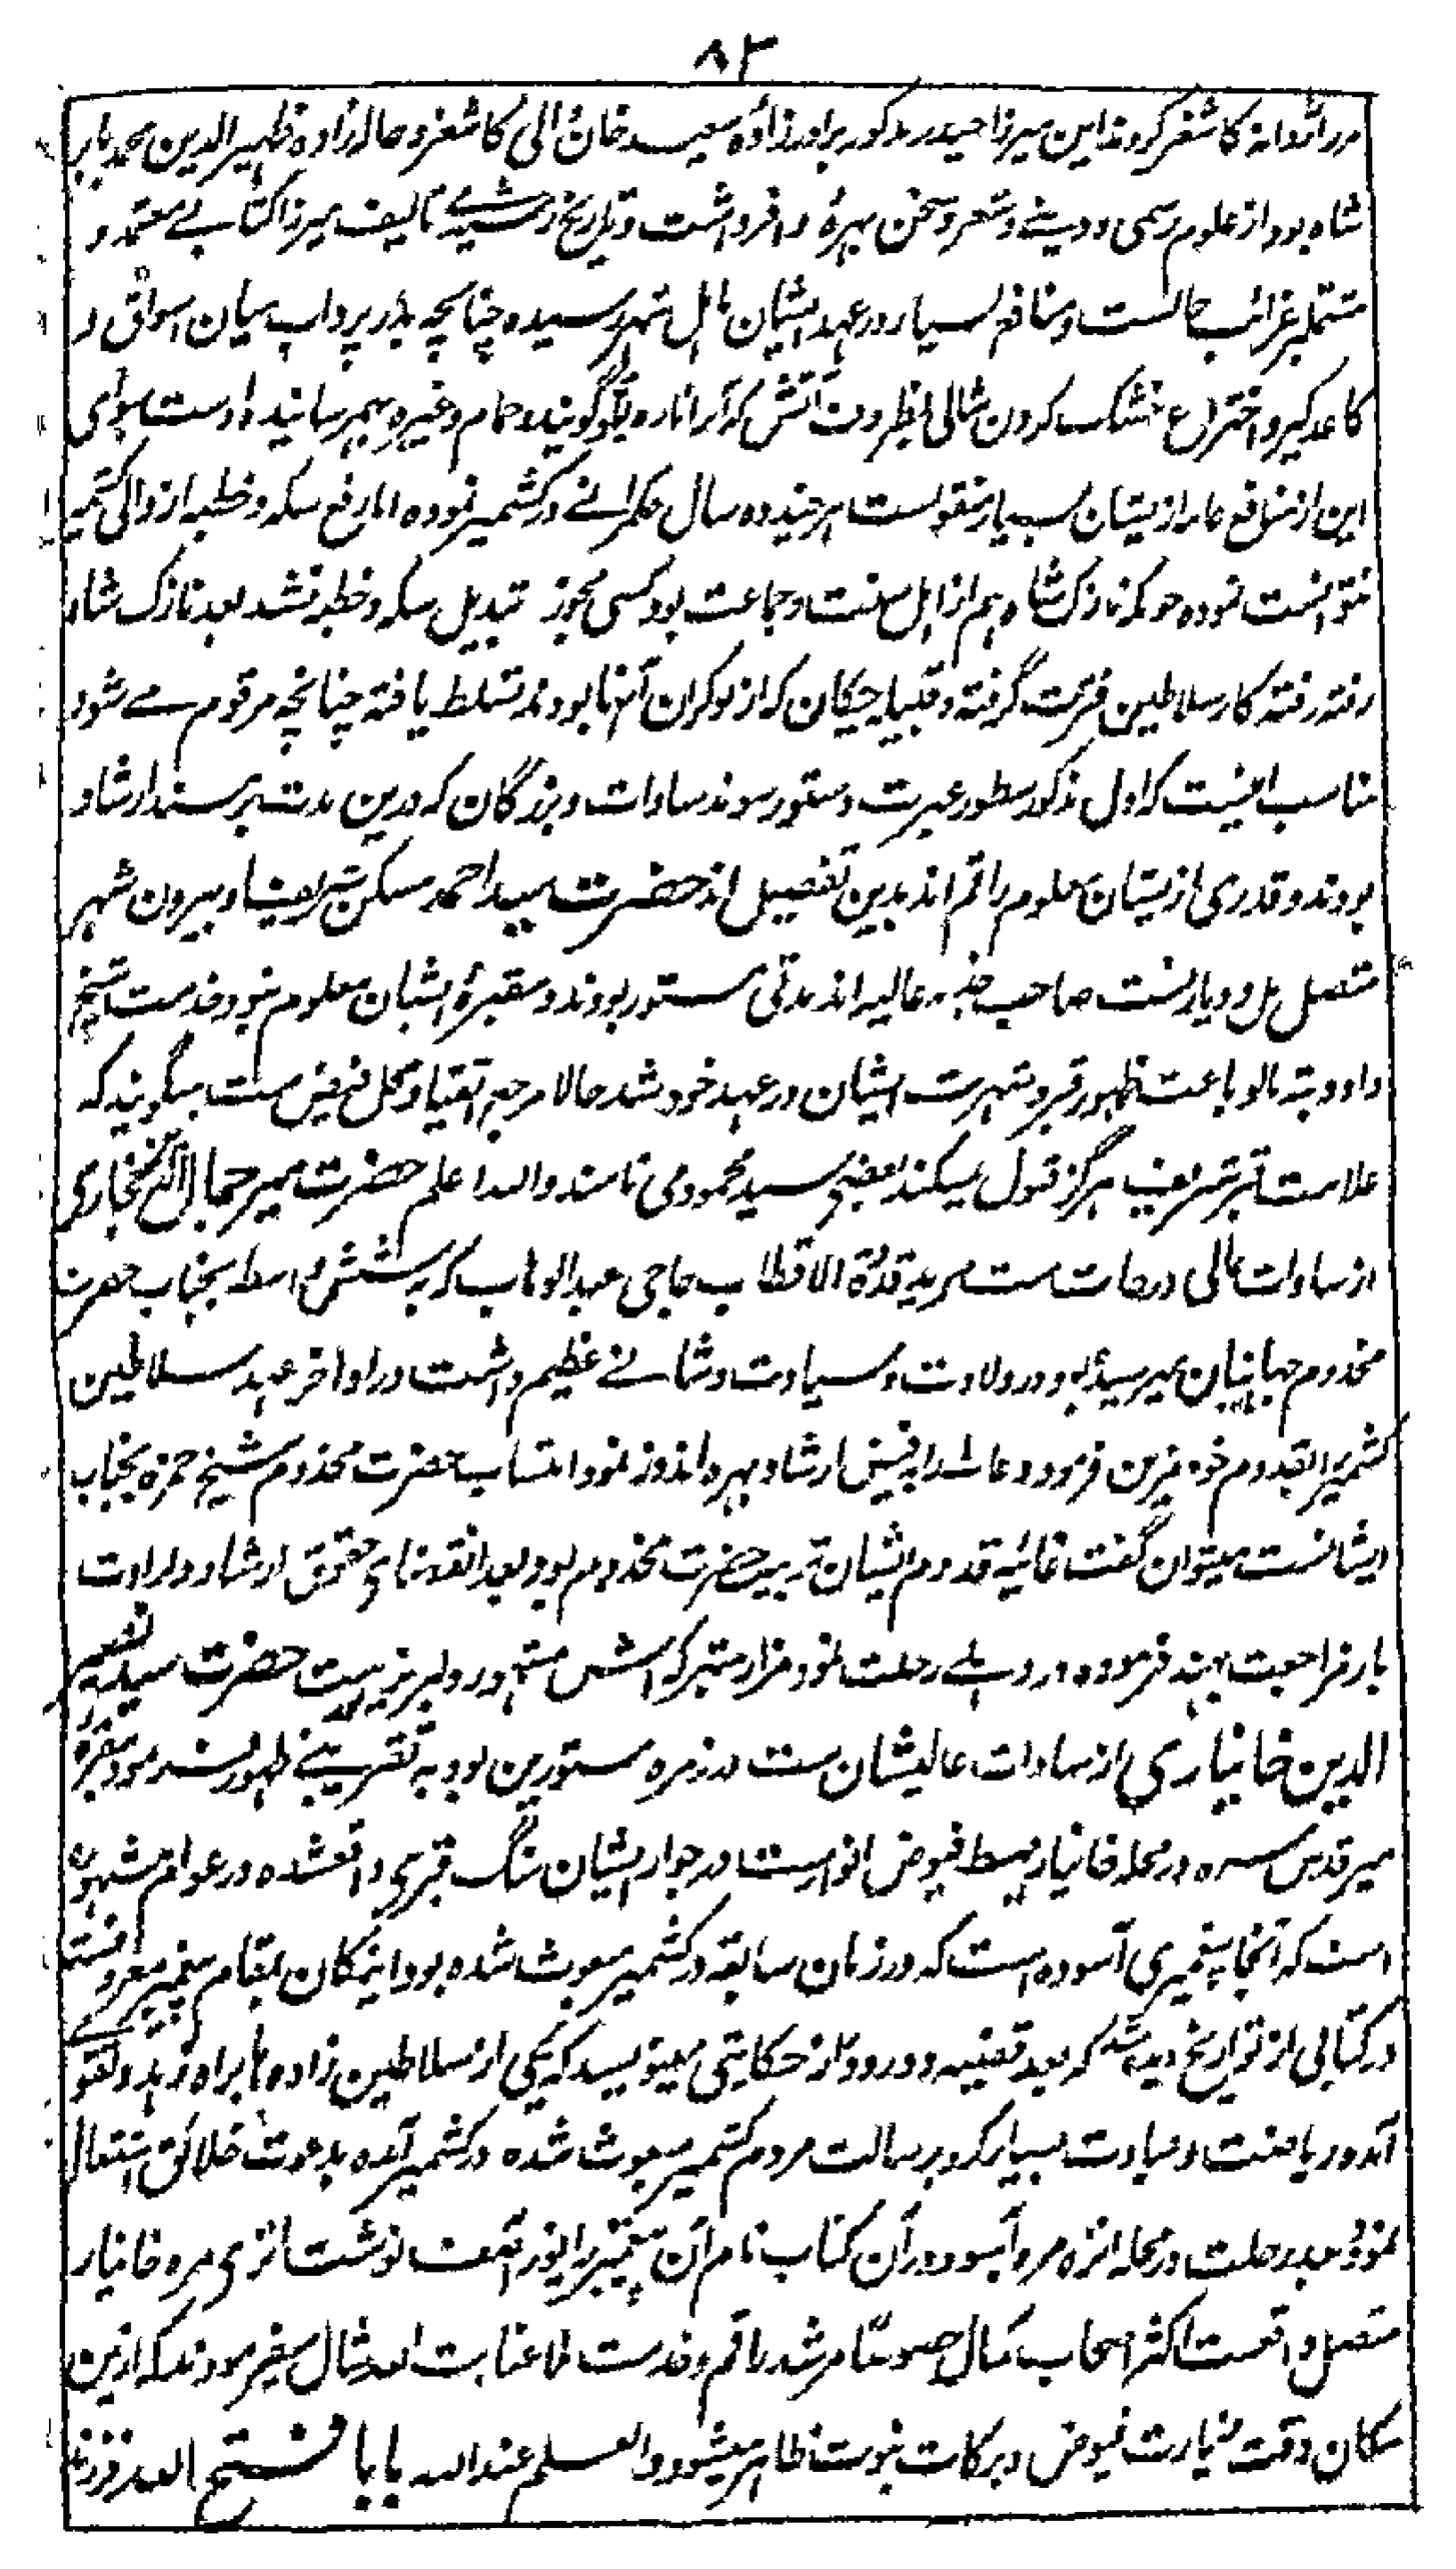 ۸۲
را روانه کاشغر کردند این میرزا حیدر مذکور برادرزاده سعید خان والی کاشغر و خاله زاده ظهیر الدین محمد بابر
شاه بود از علوم رسمی و دینے و شعر و سخن بهرهٔ وافر داشت و تاریخ رشیدے تالیف میرزا کتابے معتمد و
مشتمل بر غرائب حالست و منافع بسیار در عهد ایشان باهل شهر رسیده چنانچه بیان اسواق و
کاغدگیر و اختراع خشک کردن شالی بظروف آتش که آنرا ناره گویند و حمام و غیره بهم رسانیده اوست سوای
این از منافع عامه از یشان بسیار منقولست هر چند ده سال حکمرانے در کشمیر نموده اما رفع سکه و خطبه از والی کشمیر
نتوانست نموده چونکه نازک شاه هم از اهل سنت و جماعت بود کسی مجوز تبدیل سکه و خطبه نشد بعد نازک شاه
رفته رفته کار سلاطین فترت گرفته و قبیله چکان که از نوکران آنها بودند تسلط یافته چنانچه مرقوم مے شود
مناسب اینست که اول مذکور سطور عبرت دستور سوند سادات و بزرگان که درین مدت بر مسند ارشاد
بودند و قدری از یشان معلوم راقم اند بدین تفصیل اند حضرت سید احمد مسکن شریف او بیرون شهر
متصل پل و دیارنست صاحب جذبه عالیه اند مدتی مستور بودند و مقبرهٔ ایشان معلوم نبود خدمت شیخ
داود بته مالو باعث ظهور قبر و شهرت ایشان در عهد خود شد حالا مرجع اتقیا و محل فیض ست میگویند که
علامت قبر شریف هرگز قبول نمیکند بعضی سید محمود می نامند والله اعلم حضرت میر جمال الدین بخاری
از سادات عالی درجات ست مرید قدوة الاقطاب حاجی عبد الوهاب که بشش واسطه بجناب حضرت
مخدوم جهانیان میرسید بود در ولایت و سیادت و شانے عظیم داشت در اواخر عهد سلاطین
کشمیر را بقدوم خود مزین فرمود و عالم را بفیض ارشاد بهره اندوز نمود انتساب حضرت مخدوم شیخ حمزه بجناب
ایشانست میتوان گفت غائیه قدوم ایشان تربیه حضرت مخدوم بود بعد انقضای حقوق ارشاد و ارادت
باز مراجعت بهند فرموده در دهلے رحلت نمود مزار متبرکه اش مشهور و حضرت سید نصیر
الدین خانیاری از سادات عالیشان ست در زمره مستورین بود به تقریبے ظهور نمود مقبرهٔ
میر قدس سره در محله خانیار مهبط فیوض انوارست در جوار ایشان سنگ قبری واقعشده در عوام مشهور
است که آنجا پیغمبری آسوده است که در زمان سابقه در کشمیر مبعوث شده بود اینمکان بمقام پیغمبر معروفست
در کتابی از تواریخ دیده شد که بعد قضیه دور و دراز حکایتی مینویسد که یکی از سلاطین زاده ها براه زهد و تقوی
آمده ریاضت و عبادت بسیار کرد برسالت مردم کشمیر مبعوث شده در کشمیر آمده بدعوت خلائق اشتغال
نمود و بعد رحلت در محله انزه مره آسود در آن کتاب نام آن پیغمبر را یوز آسف نوشت انزی مره خانیار
متصل واقعست اکثر اصحاب کمال خصوصاً مرشد راقم و خدمت ملا عنایت الله شال میفرمودند که ازین
مکان وقت زیارت فیوض و برکات نبوت ظاهر میشود والعلم عند الله بابا فتح الله فرزند